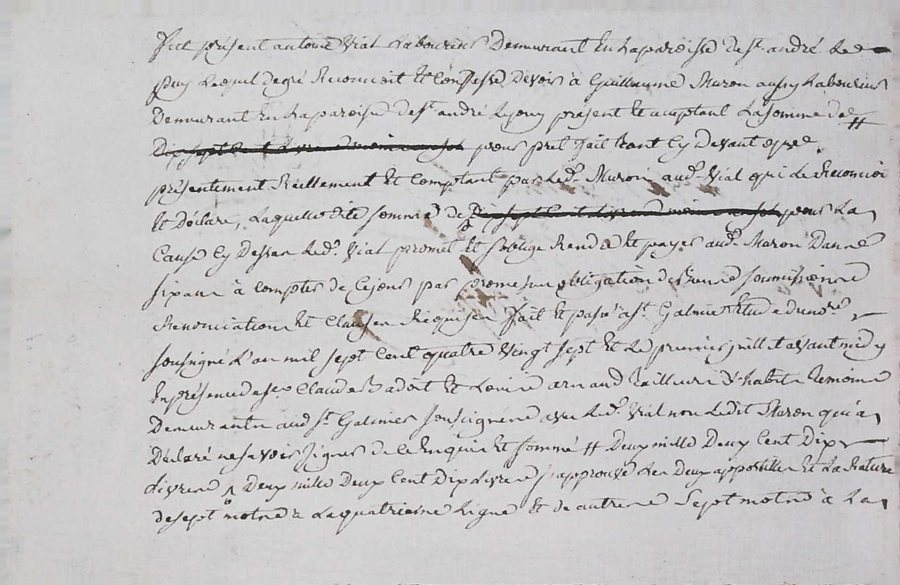 fut présent antoine Vial Laboureur Demeurant En la paroisse de st. andré Le
puy Lequel de gré Reconnoit Et Confesse Devoir à Guillaume Muron aussy Laboureur
Demeurant En la paroisse de st. andré Le puy présent Et acceptant La somme de #
pour prêt fait tant Cy Devant que
présentement Reellement Et Comptant par Led. Muron aud. Vial qui Le Reconnoi
Et Déclare, Laquelle dite somme de pour La
Cause Cy Dessus Led. Vial promet Et s'oblige Rendre Et payer aud. Muron Dans
six ans à Compter de Ce jour par promesse obligation de Biens soumissions
Renonciations Et Clauses Requises fait Et passé à st. Galmier Etude du nore.
soussigné L'an mil sept Cent quatre Vingt sept Et Le premier juillet avant midy
En présence de sr. Claude Badoit Et Louis arnaud Tailleurs D'habits Le même
Demeurants aud. st. Galmier soussignés avec Led. Vial non Ledit Muron qui a
Déclaré ne savoir signer de Ce Enquis Et sommé # Deux mille Deux Cent Dix
Livres Deux mille Deux Cent Dix Livres approuvé Les Deux appostilles Et La Rature
de sept mots à La quatrieme Ligne Et de autres Sept mots à La